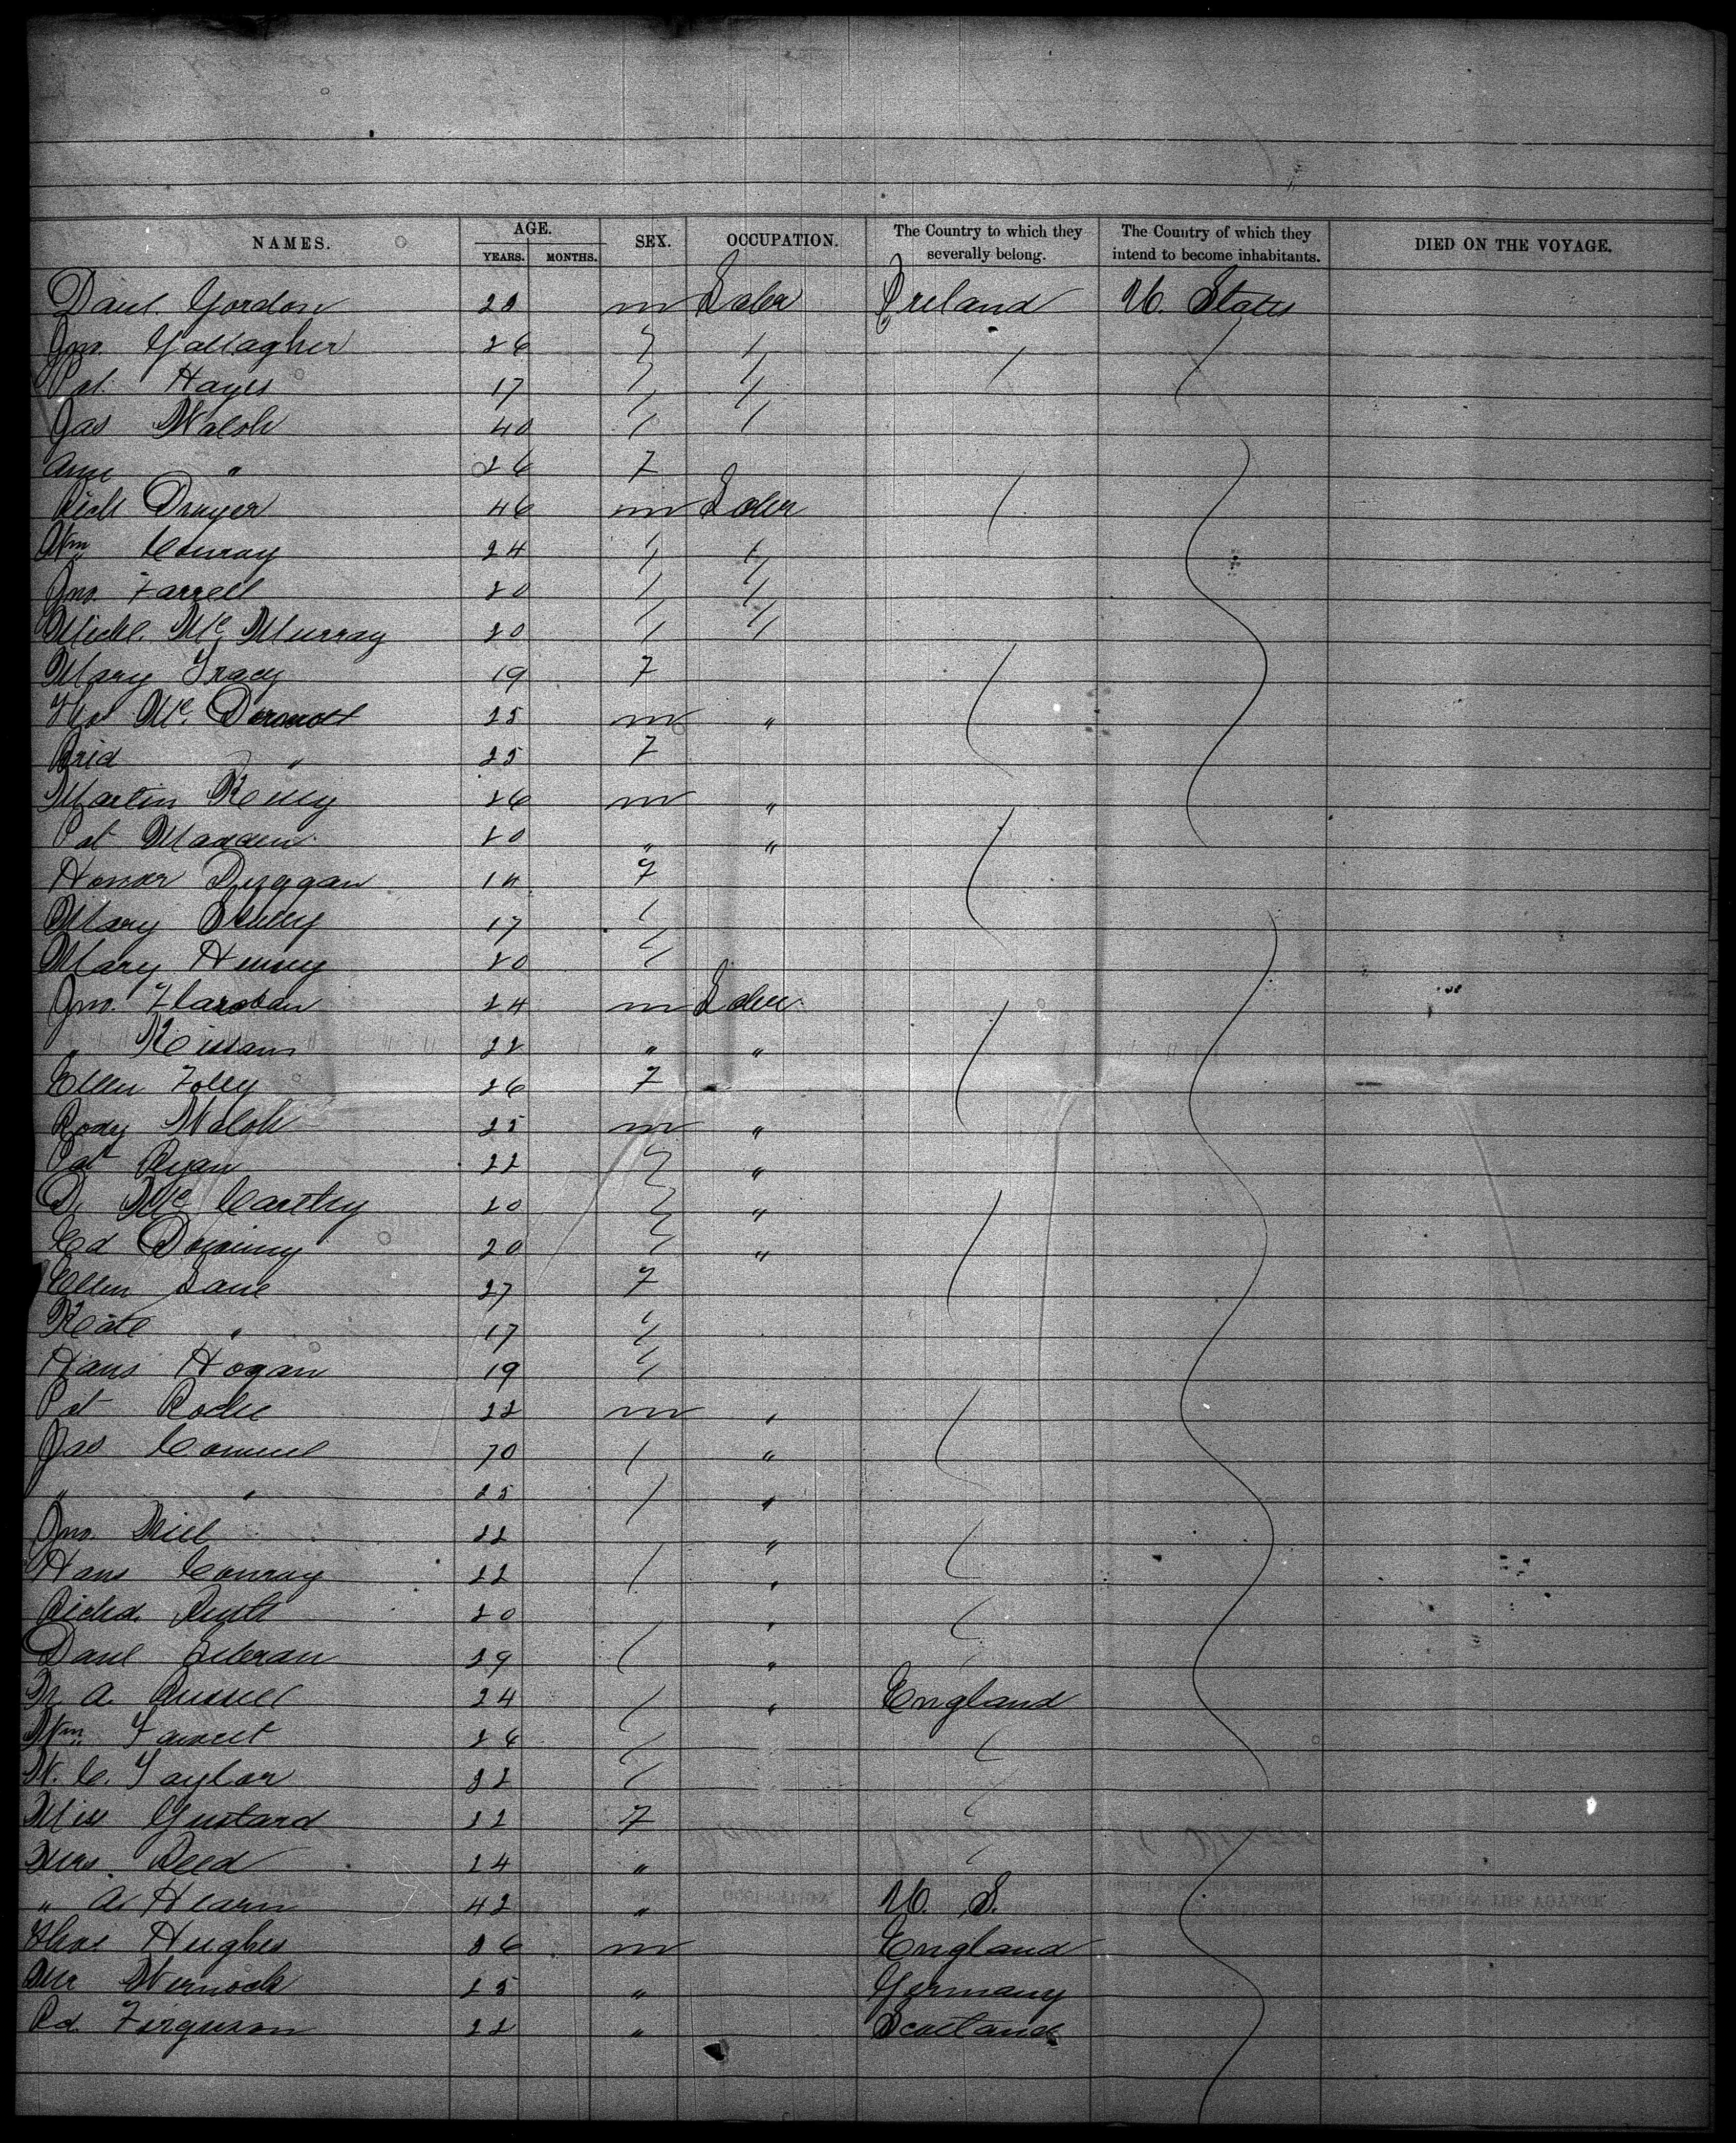 NAMES. AGE. SEX. OCCUPATION. The Country to which they severally belong. The Country of which they intend to become inhabitants. DIED ON THE VOYAGE.
YEARS. MONTHS.
Danl. Gordon 23 m Labr Ireland U. States
Jno. Gallagher 26
Pat. Hayes 17
Jas Walsh 40
Anne " 26 F
Rich Dwyer 46 m Labr
Wm Conray 24
Jno. Farrell 20
Michl. Mc Murray 20
Mary Tracy 19 F
Thos Mc Dermott 25 m "
Brid " 25 F
Martin Kelly 26 m "
Pat Madden 20 " "
Honor Duggan 14 F
Mary 17
Mary Henry 20
Jno. 24 m Labr
" 22 " "
Ellen Foley 26 F
Rody Walsh 25 m "
Pat Ryan 22 "
D. Mc Carthy 20 "
Ed Downing 20 "
Ellen Lane 27 F
Kate " 17
Hans Hogan 19
Pat Roche 22 m "
Jas 70 "
" " 25 "
Jno. 22 "
Hans Conray 22 "
Richd. 20 "
Danl 29 "
A. Russell 24 " England
Wm Fawcet 26
W. C. Taylor 32
Miss Gustard 22 F
Mrs. Reed 24 "
" A. Hearn 42 " U. S.
Thos Hughes 36 m England
Mr 25 " Germany
Rd. Ferguson 22 " Scotland